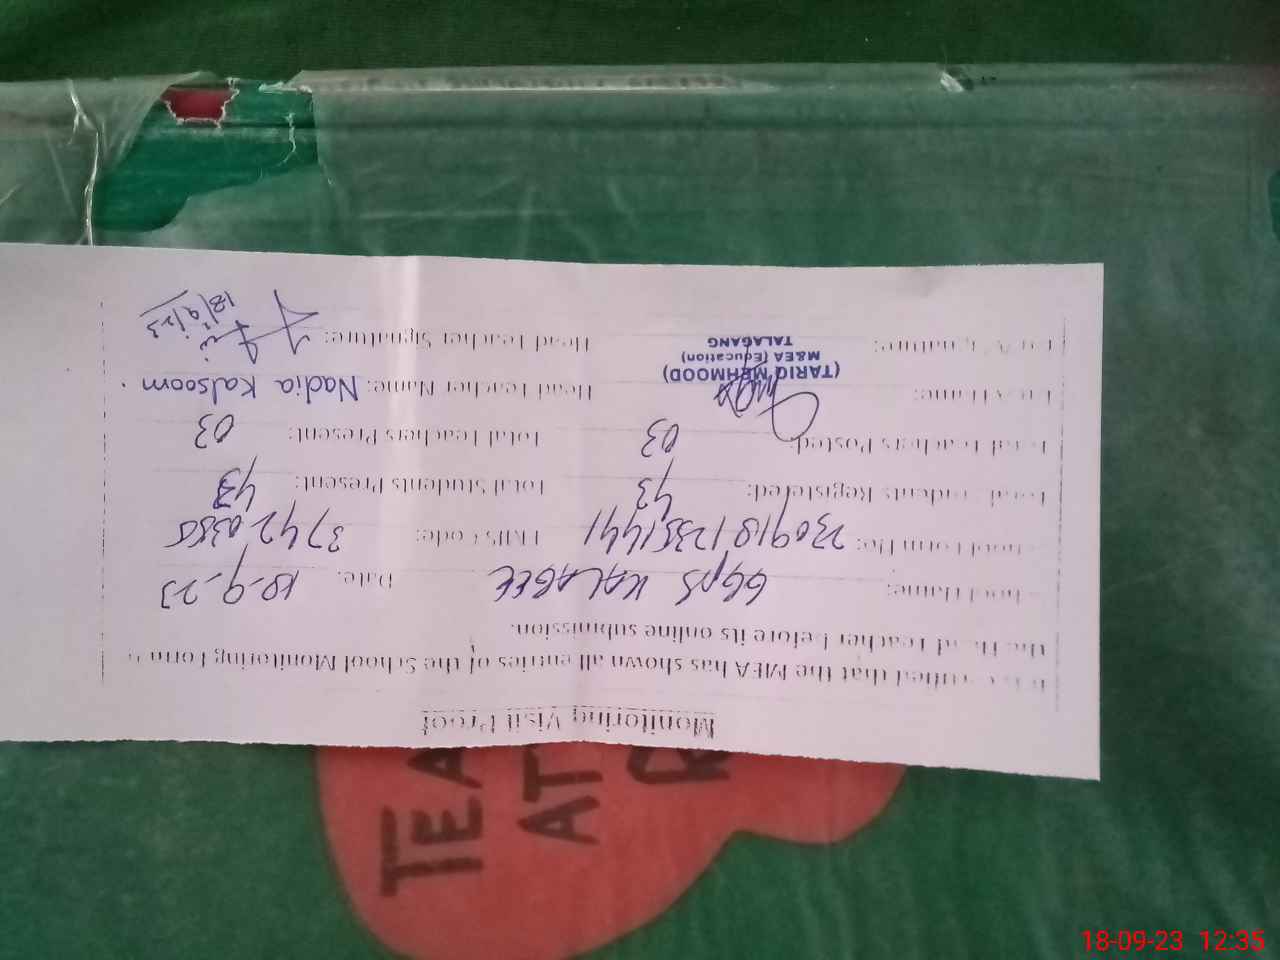 Monitoring Visit Proof
It is certified that the MEA has shown all entries of the School Monitoring Form to
the Head Teacher before its online submission.
School Name: GGPS KALAGEE Date: 18-9-23
School Form No: 23091812351441 EMIS Code: 37420385
Total Students Registered: 43 Total Students Present: 43
Total Teachers Posted: 03 Total Teachers Present: 03
MEA Name: Head Teacher Name: Nadia Kalsoom
(TARIQ MEHMOOD)
M&EA (Education)
TALAGANG
MEA Signature: Head Teacher Signature:
18/9/23
TEA
AT
18-09-23 12:35